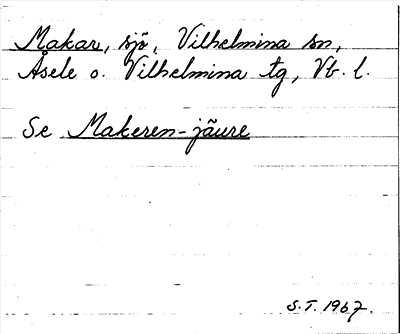 Måkar, sjö, Vilhelmina sn,
Åsele o. Vilhelmina tg, Vb. l.
Se Makeren-jäure
S.T. 1967.